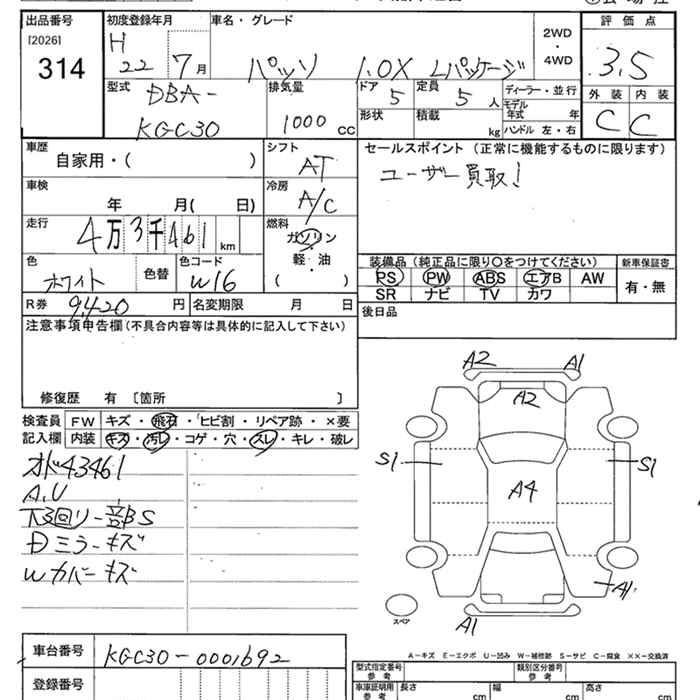 出品番号
[2026]
314
初度登録年月
H 22 7月
車名・グレード
パッソ 1.0X Lパッケージ
2WD
・
4WD
評価点
3.5
外装 内装
C C
型式
DBA-
KGC30
排気量
1000 CC
ドア
5
定員
5 人
形状
積載
kg
ディーラー・並行
モデル
年式 年
ハンドル 左・右
車歴
自家用・( )
シフト
AT
車検
年 月( 日)
冷房
A/C
走行
4万3千461 km
燃料
ガソリン
軽・油
( )
色
ホワイト
色替
色コード
W16
R券 9,420 円
名変期限 月 日
セールスポイント(正常に機能するものに限ります)
ユーザー買取!
装備品(純正品に限り○をつけてください)
PS PW ABS エアB AW
SR ナビ TV カワ
新車保証書
有・無
後日品
注意事項申告欄(不具合内容等は具体的に記入して下さい)
修復歴 有 〔箇所 〕
検査員
記入欄
FW キズ・飛石・ヒビ割・リペア跡・×要
内装 キズ・汚レ・コゲ・穴・スレ・キレ・破レ
オド43461
A.U
下回り一部S
Dミラーキズ
Wカバーキズ
A2
A1
A2
S1
S1
A4
A1
A1
スペア
A-キズ E-エクボ U-凹み W-補修跡 S-サビ C-腐食 ××-交換済
車台番号
KGC30-0001692
登録番号
型式指定番号
参考
類別区分番号
参考
車庫証明用
参考
長さ cm
幅 cm
高さ cm